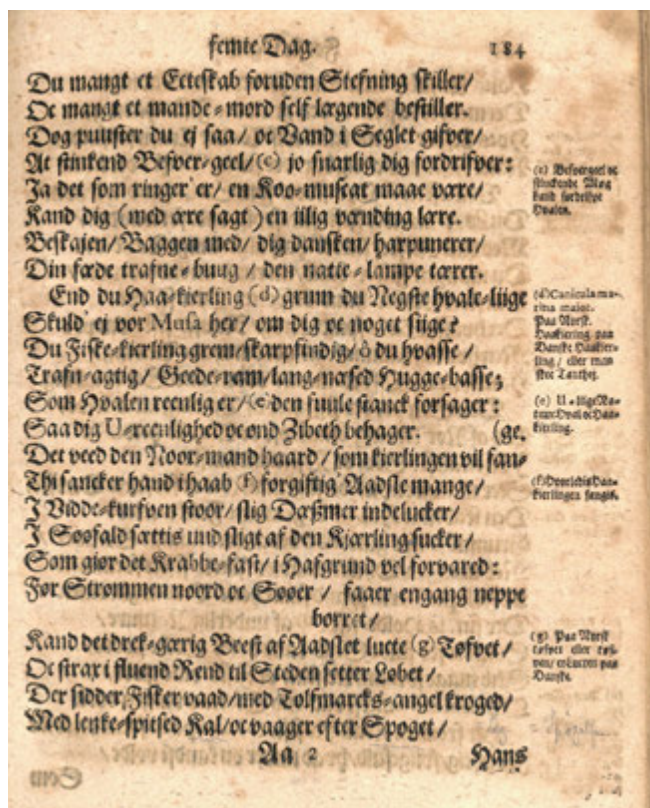 femte Dag. 184
Du mangt et Ecteskab foruden Stefning skiller/
Oc mangt et mande-mord self lægende bestiller.
Dog puuster du ej saa/ oc Vand i Seglet gifver/
At stinkend Besver-geel/(c) jo snarlig dig fordrifver:
Ja det som ringer er/ en Koo-muscat maae være/
Kand dig (med ære sagt) en iilig vænding lære.
Beskajen/ Baggen med/ dig dansken/ harpunerer/
Din fæde trafne-buug / den natte-lampe tærer.
End du Haa-kierling (d) grum du Negste hvale-liige
Skuld' ej vor Musa her/ om dig oc noget siige?
Du Fiske-kierling grem/skarpsindig/ ô du hvasse /
Trafn-agtig/ Geede-ram/lang-næsed Hugge-basse;
Som Hvalen reenlig er/(e den fuule stanck forsager:
Saa dig U-reenlighed oc ond Zibeth behager. (ge.
Det veed den Noor-mand haard / som kierlingen vil fan-
Thi sancker hand i haab (f) forgiftig Aadsle mange/
J Vidde-kurfven stoor/ slig Dæsmer indelucker/
J Soofald sættis und sligt af den Kjærling sucker/
Som giør det Krabbe-fast/ i Hafgrund vel forvared:
Før Strommen noord oc Søøer / faaer engang neppe
borret/
Kand det dreck-gærig Beest af Aadslet lucte (g) Tøfvet/
Oc strax i fluend Rend til Steden setter Løbet/
Der sidder Fisker vaad/med Tolfmarcks-angel kroged/
Med lenke-spitsed Kal/oc vaager efter Spoget/
Aa 2 Hans
(c) Besvergeel oc
stinckende Møg
kand fordrifve
Hvalen.
(d) Canicula ma-
rina maior.
Paa Norsk
Haakiering paa
Danske Haakier-
ling/ eller man
skee Tanthej.
(e) U-lige Na-
tuur Hval oc Haa-
kierling.
(f) Hvorledis Haa-
kierlingen fangis.
(g) Paa Norsk
tøfvet eller tøf-
ven/
Danske.